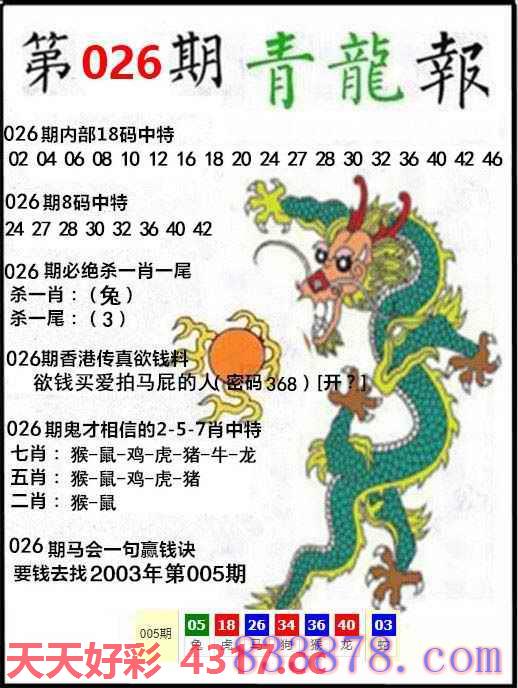 第026期青龍報
026期内部18码中特
02 04 06 08 10 12 16 18 20 24 27 28 30 32 36 40 42 46
026期8码中特
24 27 28 30 32 36 40 42
026期必绝杀一肖一尾
杀一肖：（兔）
杀一尾：（3）
026期香港传真欲钱料
欲钱买爱拍马屁的人（密码368）[开？]
026期鬼才相信的2-5-7肖中特
七肖：猴-鼠-鸡-虎-猪-牛-龙
五肖：猴-鼠-鸡-虎-猪
二肖：猴-鼠
026期马会一句赢钱诀
要钱去找2003年第005期
005期 05 18 26 34 36 40 03
兔 虎 马 狗 猴 龙 蛇
天天好彩 4317.cc
833878.com